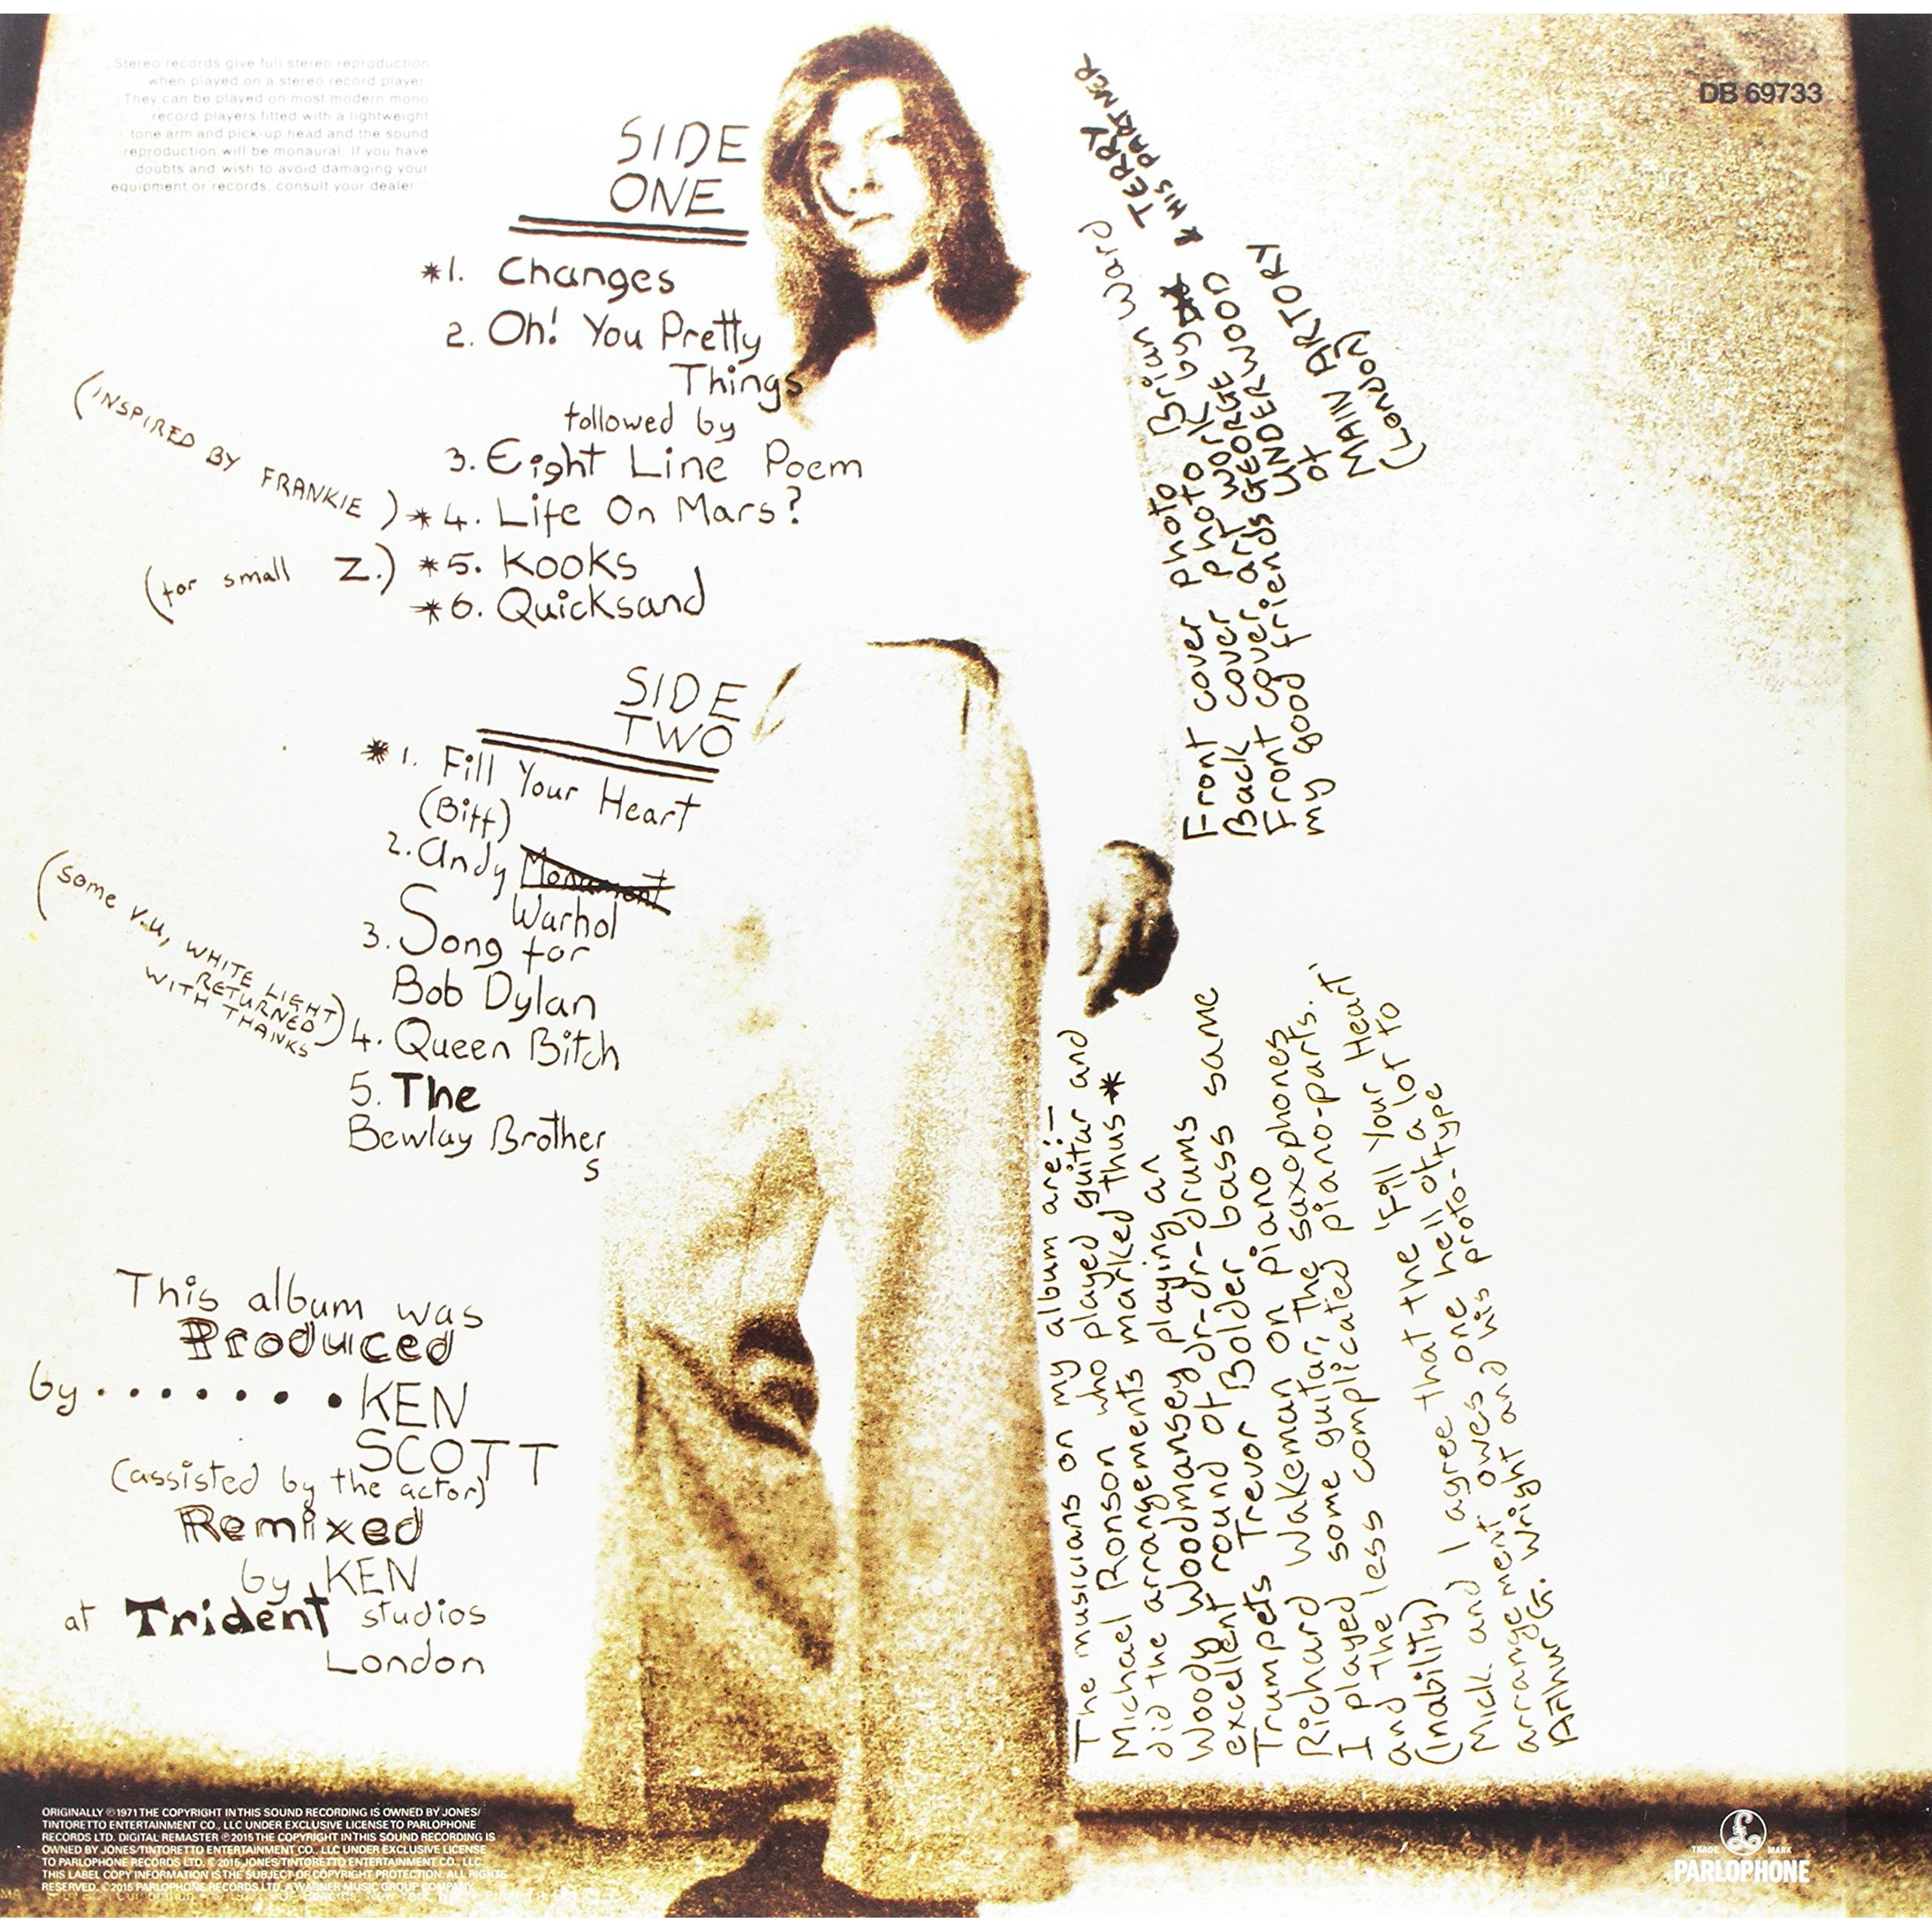 Stereo records give full stereo reproduction
when played on a stereo record player.
They can be played on most modern mono
record players fitted with a lightweight
tone arm and pick-up head and the sound
reproduction will be monaural. If you have
doubts and wish to avoid damaging your
equipment or records, consult your dealer."
DB 69733
SIDE
ONE
*1. Changes
2. Oh! You Pretty
Things
followed by
3. Eight Line Poem
(INSPIRED BY FRANKIE) *4. Life On Mars?
(for small Z.) *5. Kooks
*6. Quicksand
SIDE
TWO
*1. Fill Your Heart
(Biff)
2. Andy Monument
Warhol
3. Song for
Bob Dylan
(some V.U, WHITE LIGHT
RETURNED
WITH THANKS)
4. Queen Bitch
5. The
Bewlay Brother
s
This album was
Produced
by . . . . . . . KEN
SCOTT
(assisted by the actor)
Remixed
by KEN
at Trident studios
London
Front cover photo Brian Ward
Back cover photo by TERRY
& HIS PARTNER
Front cover art work
my good friends GEORGE
UNDERWOOD
of
MAIN ARTORY
(London)
The musicians on my album are:-
Michael Ronson who played guitar and
did the arrangements marked thus *
Woody Woodmansey playing an
excellent round of dr-dr-dr-drums
Trumpets Trevor Bolder bass same
Richard Wakeman on piano
I played some guitar, the saxophones
and the less complicated piano-parts.
(inability)
Mick and I agree that the 'Fill Your Heart'
arrangement owes one hell of a lot to
Arthur G. Wright and his proto-type
ORIGINALLY ℗1971 THE COPYRIGHT IN THIS SOUND RECORDING IS OWNED BY JONES/
TINTORETTO ENTERTAINMENT CO., LLC UNDER EXCLUSIVE LICENSE TO PARLOPHONE
RECORDS LTD. DIGITAL REMASTER ℗2015 THE COPYRIGHT IN THIS SOUND RECORDING IS
OWNED BY JONES/TINTORETTO ENTERTAINMENT CO., LLC UNDER EXCLUSIVE LICENSE
TO PARLOPHONE RECORDS LTD. © 2015 JONES/TINTORETTO ENTERTAINMENT CO., LLC.
THIS LABEL COPY INFORMATION IS THE SUBJECT OF COPYRIGHT PROTECTION. ALL RIGHTS
RESERVED. ©2015 PARLOPHONE RECORDS LTD, A WARNER MUSIC GROUP COMPANY
TRADE MARK
PARLOPHONE